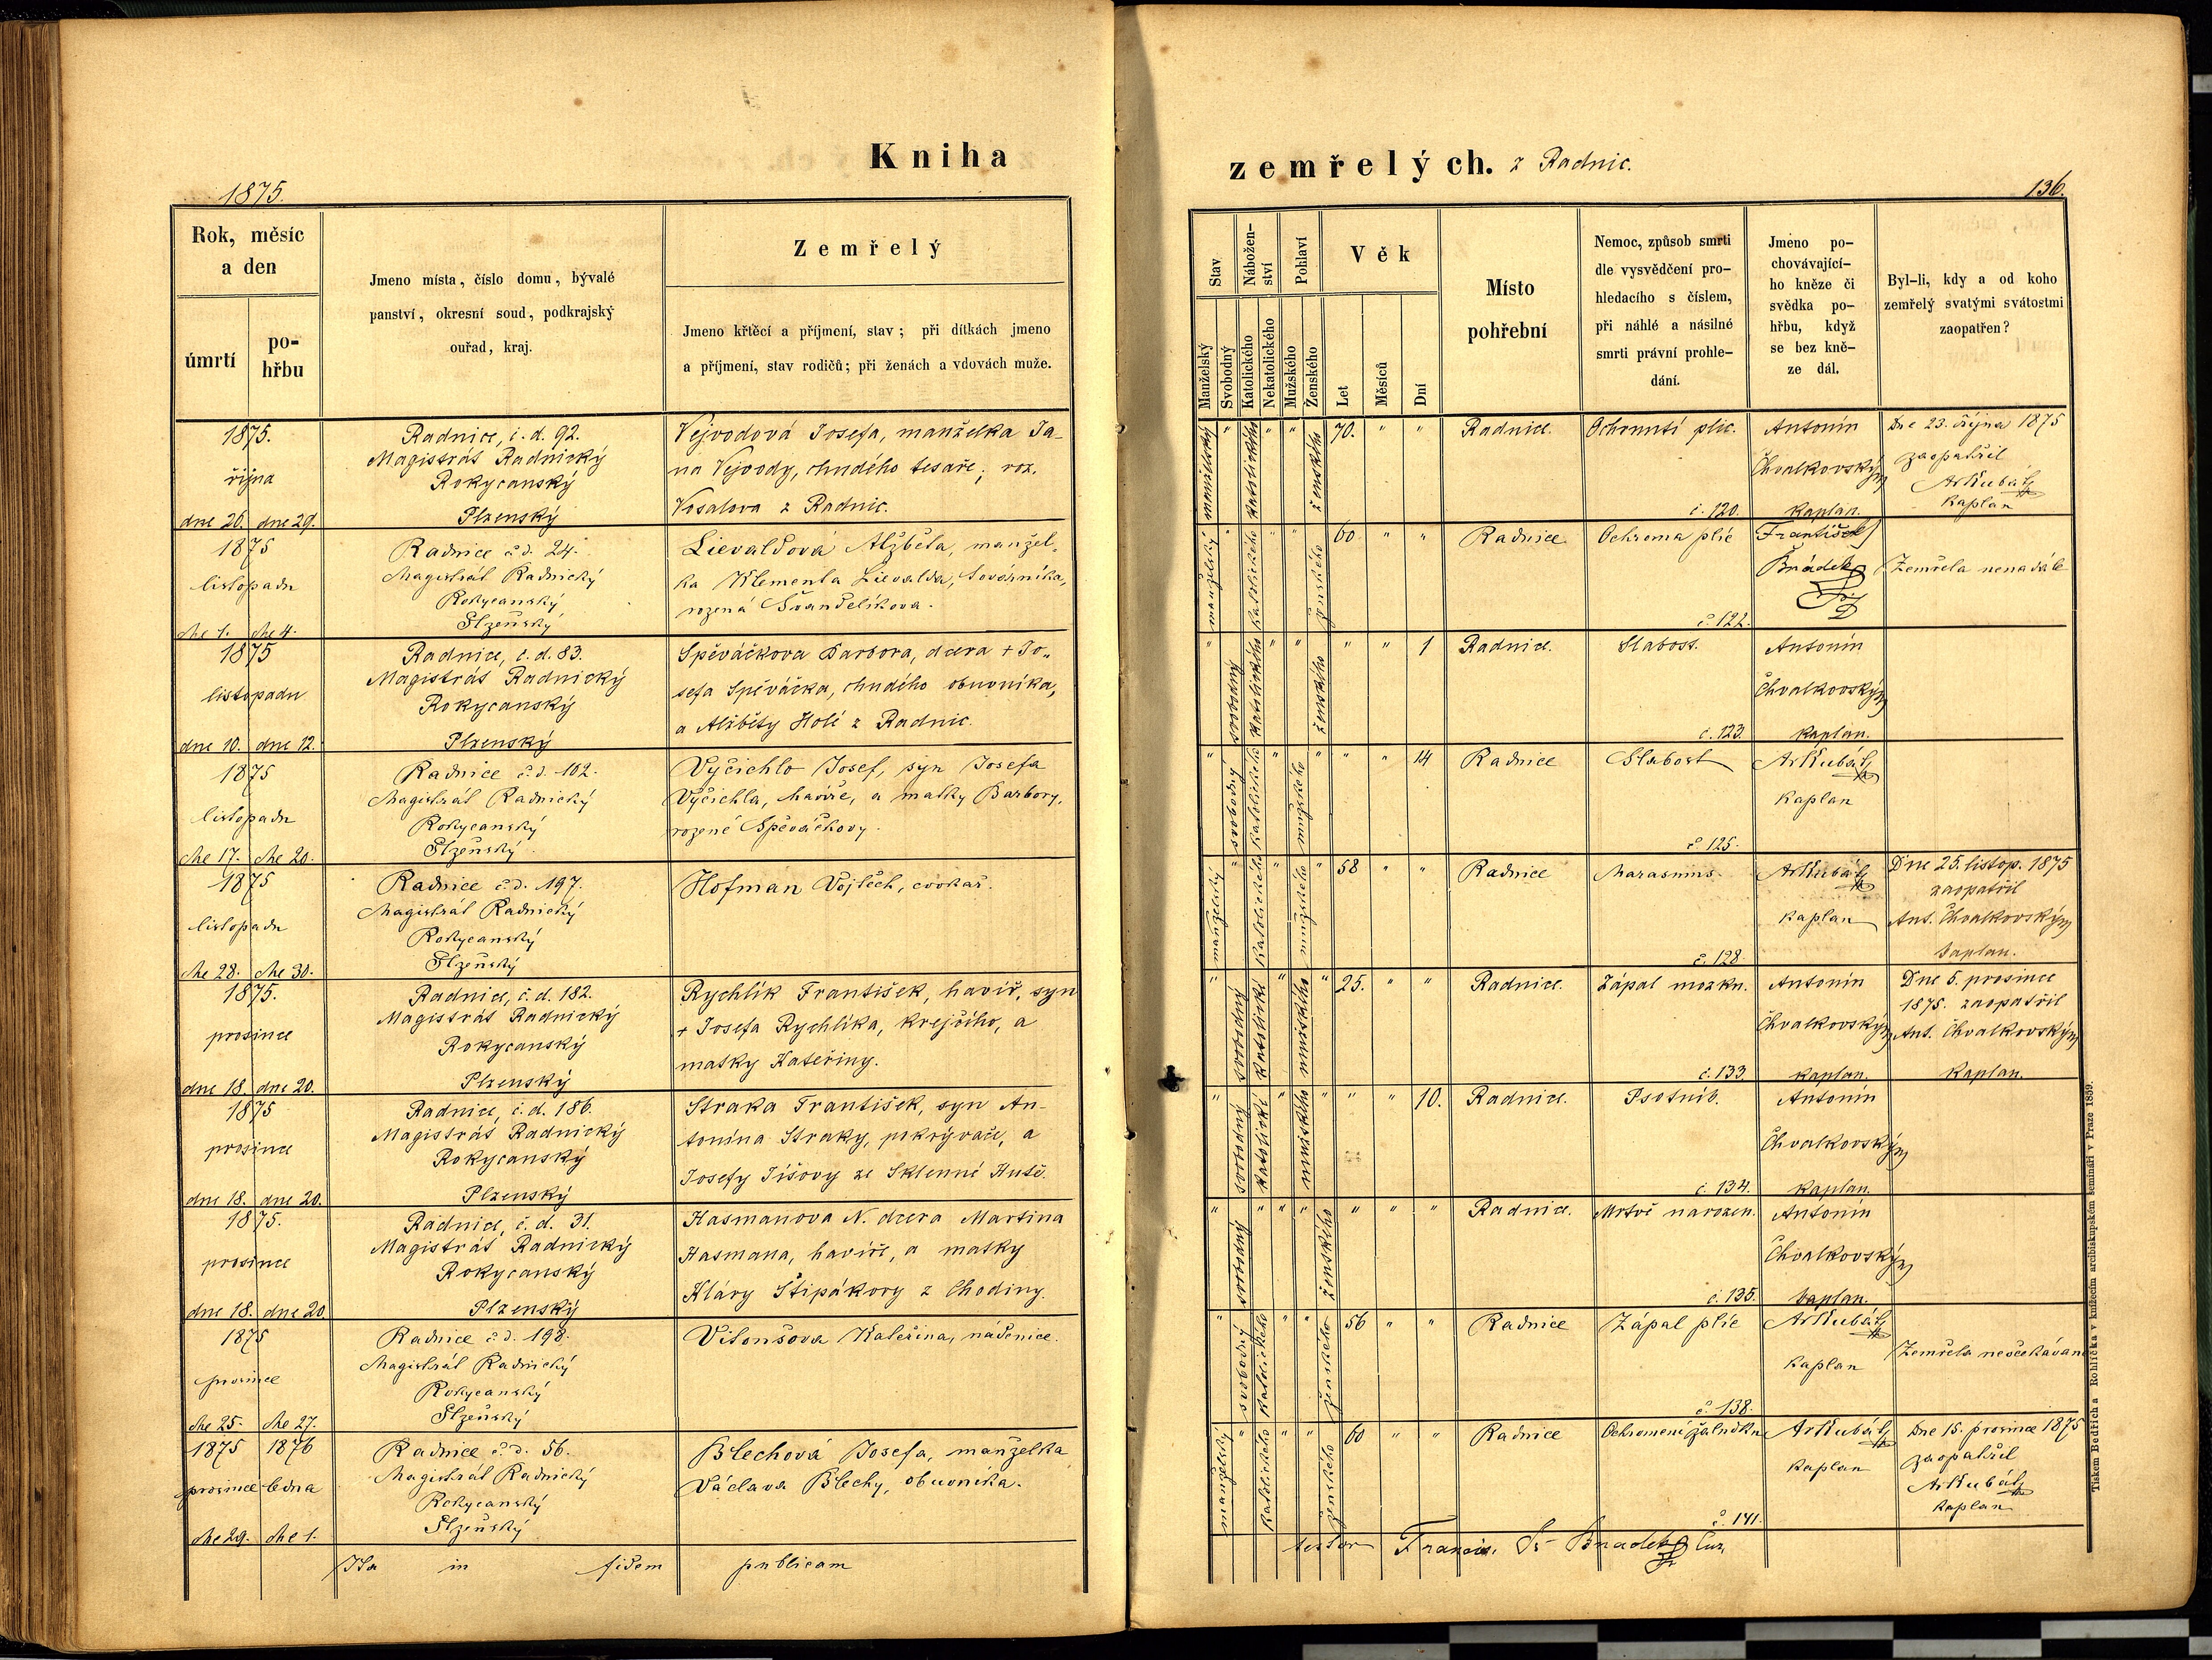 Kniha
zemřelých. z Radnic.
1875.
136.
Rok, měsíc
a den
úmrtí
po-
hřbu
Jmeno místa, číslo domu, bývalé
panství, okresní soud, podkrajský
ouřad, kraj.
Zemřelý
Jmeno křtěcí a příjmení, stav; při dítkách jmeno
a příjmení, stav rodičů; při ženách a vdovách muže.
Stav
Manželský
Svobodný
Nábožen-
ství
Katolického
Nekatolického
Pohlaví
Mužského
Ženského
Věk
Let
Měsíců
Dní
Místo
pohřební
Nemoc, způsob smrti
dle vysvědčení pro-
hledacího s číslem,
při náhlé a násilné
smrti právní prohle-
dání.
Jmeno po-
chovávající-
ho kněze či
svědka po-
hřbu, když
se bez kně-
ze dál.
Byl-li, kdy a od koho
zemřelý svatými svátostmi
zaopatřen?
1875.
října
dne 26. dne 29.
Radnice, č. d. 92.
Magistrát Radnický
Rokycanský
Plzenský
Vejvodová Josefa, manželka Ja-
na Vejvody, chudého tesaře; roz.
Vosalova z Radnic.
manželský " katolického " " ženského 70. " "
Radnice.
Ochrnutí plic.
č. 120.
Antonín
Chvalkovský
kaplan.
Dne 23. října 1875
zaopatřil
Ar Kubát
kaplan
1875
listopadu
dne 1. dne 4.
Radnice č. d. 24.
Magistrát Radnický
Rokycanský
Plzeňský
Lievaldová Alžběta, manžel-
ka Klementa Lievalda, tovární­ka,
rozená Švandelíkova.
manželský " katolického " " ženského 60 " "
Radnice
Ochroma plic
č. 122.
František
Bradek
Zemřela nenadále
1875
listopadu
dne 10. dne 12.
Radnice, č. d. 83.
Magistrát Radnický
Rokycanský
Plzenský
Spěváčkova Barbora, dcera + Jo-
sefa Spěváčka, chudého obuvníka,
a Alžběty Holé z Radnic.
" svobodný katolického " " ženského " " 1
Radnice.
Slabost.
č. 123.
Antonín
Chvalkovský
kaplan.
1875
listopadu
dne 17. dne 20.
Radnice č. d. 102.
Magistrát Radnický
Rokycanský
Plzeňský
Vyčichlo Josef, syn Josefa
Vyčichla, havíře, a matky Barbory,
rozené Spěváčkovy.
" svobodný katolického " mužského " " " 14
Radnice
Slabost
č. 125.
Ar Kubát
kaplan
1875
listopadu
dne 28. dne 30.
Radnice č. d. 197.
Magistrát Radnický
Rokycanský
Plzeňský
Hofman Vojtěch, cvokař.
manželský " katolického " mužského " 58 " "
Radnice
Marasmus
č. 128.
Ar Kubát
kaplan
Dne 25. listop. 1875
zaopatřil
Ant. Chvalkovský
kaplan.
1875.
prosince
dne 18. dne 20.
Radnice, č. d. 182.
Magistrát Radnický
Rokycanský
Plzenský
Rychlík František, havíř, syn
+ Josefa Rychlíka, krejčího, a
matky Kateřiny.
" svobodný katolické " mužského " 25. " "
Radnice.
Zápal mozku.
č. 133.
Antonín
Chvalkovský
kaplan.
Dne 5. prosince
1875. zaopatřil
Ant. Chvalkovský
kaplan.
1875
prosince
dne 18. dne 20.
Radnice, č. d. 186.
Magistrát Radnický
Rokycanský
Plzenský
Straka František, syn An-
tonína Straky, pokrývače, a
Josefy Jíšovy ze Sklenné Hutě.
" svobodný katolické " mužského " " " 10.
Radnice.
Psotník.
č. 134.
Antonín
Chvalkovský
kaplan.
1875.
prosince
dne 18. dne 20.
Radnice, č. d. 31.
Magistrát Radnický
Rokycanský
Plzenský
Hasmanova N. dcera Martina
Hasmana, havíře, a matky
Kláry Štipákovy z Chodiny.
" svobodný " " " ženského " " "
Radnice.
Mrtvě narozen.
č. 135.
Antonín
Chvalkovský
kaplan.
1875
prosince
dne 25. dne 27.
Radnice č. d. 198.
Magistrát Radnický
Rokycanský
Plzeňský
Vitoušova Kateřina, nádenice.
" svobodný katolického " " ženského 56 " "
Radnice
Zápal plic
č. 138.
Ar Kubát
kaplan
Zemřela neočekávaně
1875 1876
prosince ledna
dne 29. dne 1.
Radnice č. d. 56.
Magistrát Radnický
Rokycanský
Plzeňský
Blechová Josefa, manželka
Václava Blechy, obuvníka.
manželský " katolického " " ženského 60 " "
Radnice
Ochromení žaludku
č. 141.
Ar Kubát
kaplan
Dne 15. prosince 1875
zaopatřil
Ar Kubát
kaplan
Ita in fidem publicam
testor Francis. Bradek
Tiskem Bedřicha Rohlíčka v knížecím arcibiskupském semináři v Praze 1859.